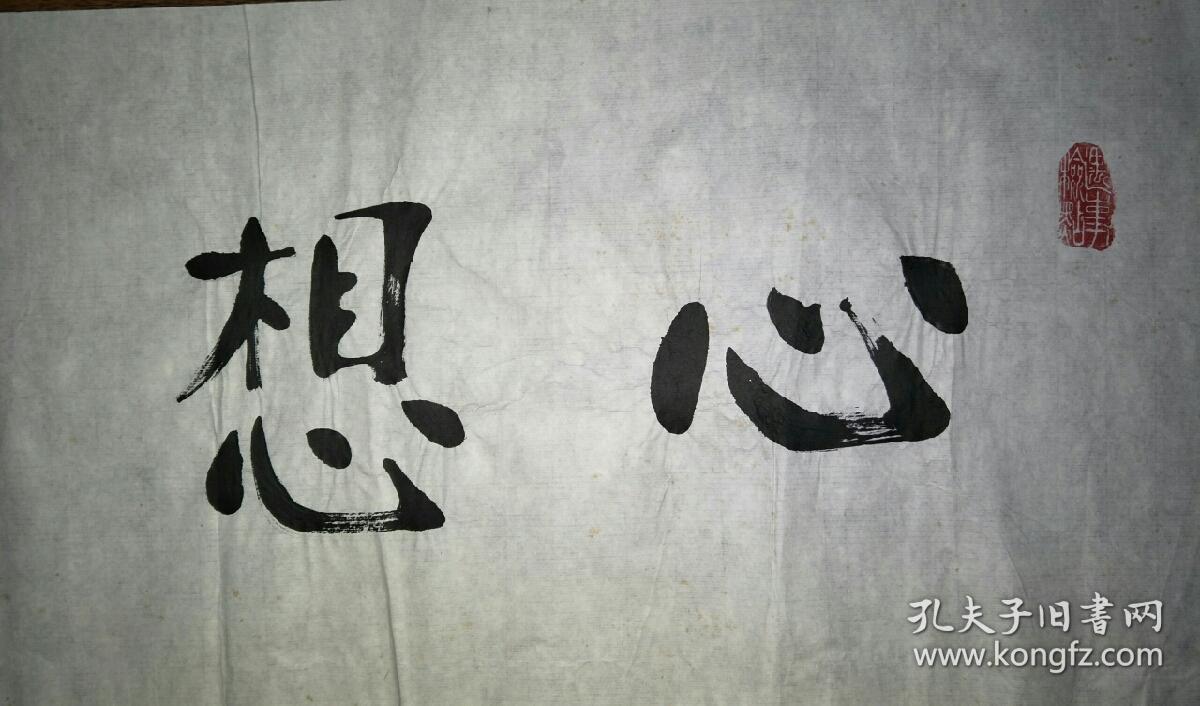 心想
孔夫子旧书网
www.kongfz.com